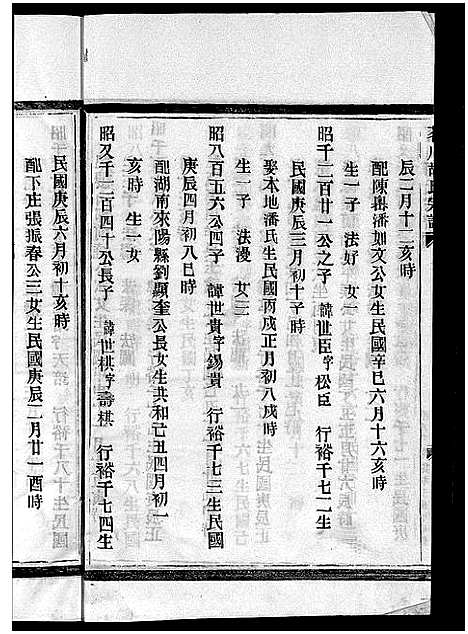 辰二月十二亥時
配陳巷潘如文公女生民國辛巳六月十六亥時
生一子　法好　女一
昭千二百廿一公之子　諱世臣字松臣　行裕千七二生
民國庚辰三月初十子時
娶本地潘氏生民國丙戌正月初八戌時
生一子　法漫　女三
昭八百五六公四子　諱世貴字錫貴　行裕千七三生民國
庚辰四月初八巳時
配湖南來陽縣劉顯奎公長女生共和己丑四月初一
亥時　生一女
昭又千二百四十公長子　諱世棋字壽棋　行裕千七四生
民國庚辰六月初十亥時
配下庄張振春公三女生民國庚辰二月廿一酉時